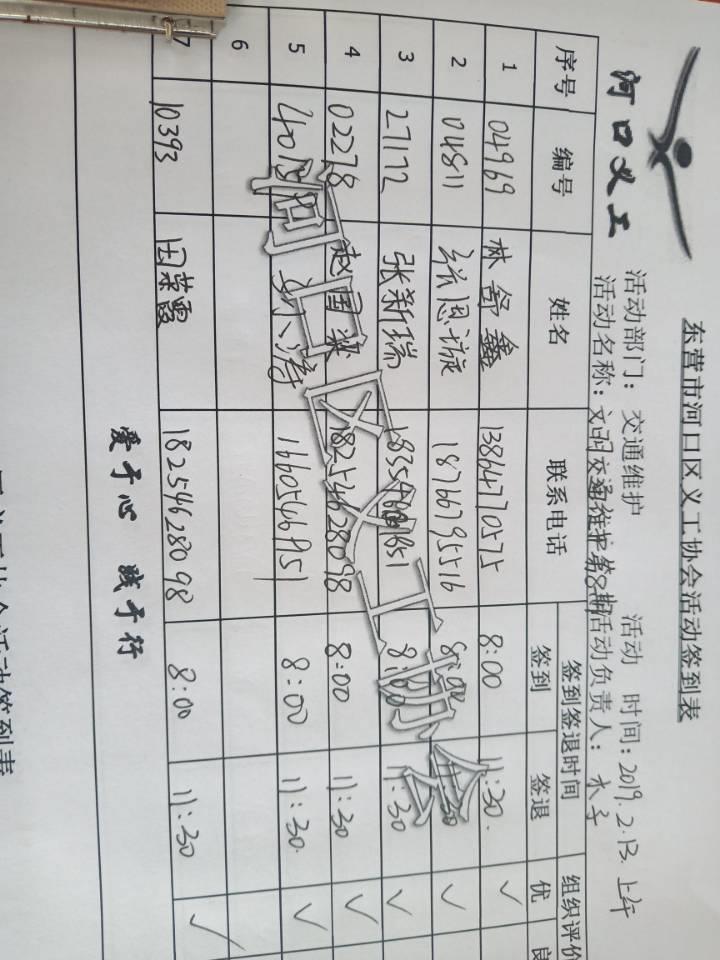 东营市河口区义工协会活动签到表
河口义工
活动部门：交通维护 活动 时间：2019.2.13.上午
活动名称：文明交通维护第8期 活动负责人：木子
序号 编号 姓名 联系电话 签到签退时间 组织评价
签到 签退 优 良
1 04969 林舒鑫 13864770575 8:00 11:30 ✓
2 04811 18766795516 8:00 ✓
3 27172 张新瑞 8:00 11:30 ✓
4 02278 赵国荣 18254628098 8:00 11:30 ✓
5 8:00 11:30 ✓
6
7 10393 田荣霞 18254628098 8:00 11:30 ✓
河口区义工协会
爱于心 践于行